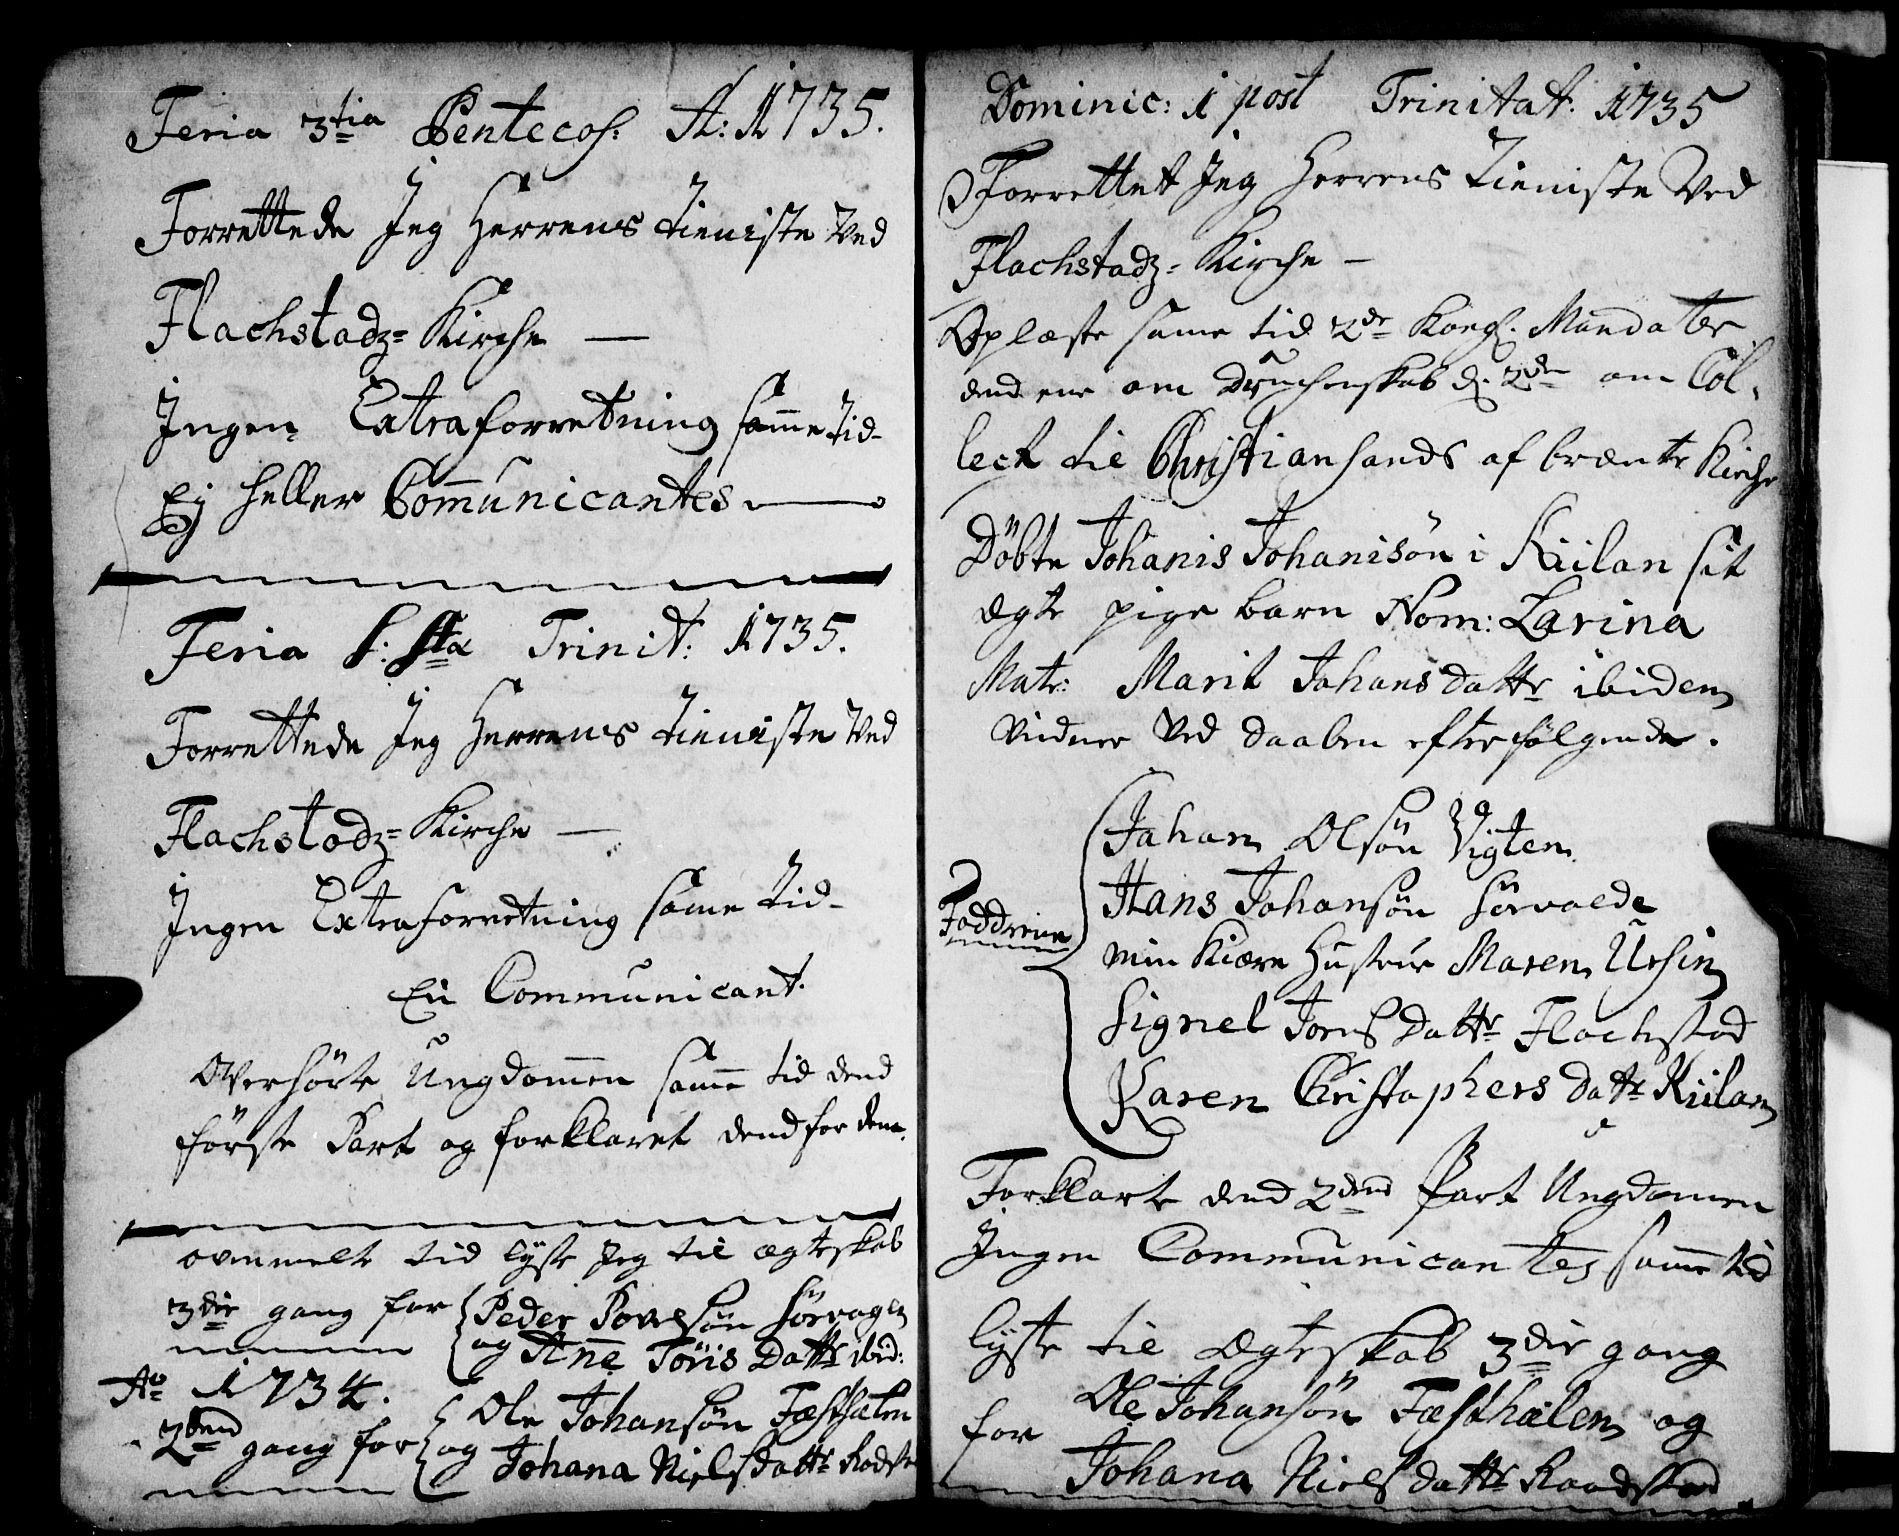 Feria 3tia Pentecos: A: 1735.
Forrettede Jeg Herrens tieniste ved
Flachstadz= Kirche —
Ingen Extraforretning same tid-
Ej heller Comunicantes —
Feria S: Sta Trinit: 1735.
Forrettede Jeg Herrens tieniste ved
Flachstadz= Kirche —
Ingen Extraforretning same tid-
En Communicant.
Overhörte Ungdomen same tid dend
förste Part og forklaret dend for dem.
ovenmelte tid lyste Jeg til ægteskab
3die gang for Peder Sörvogen
og Ane Töris Dattr ibid:
Ao 1734.
2dend gang for Ole Johansön Fæsthælen
og Johana Nielsdattr
Dominic: 1 post Trinitat: 1735
Forrettet Jeg Herrens tieniste ved
Flachstadz= Kirche —
Oplæste same tid 2de Kongl. Mandater
dend ene om Druchenskab d. 2den om Col-
lect til Christiansands af brænte Kirche
Döbte Johanis Johanisön i Kiilan sit
ægte pige barn Nom: Zarina
Matr: Marit Johansdattr ibidem
vidner ved daaben efterfölgende.
Faddrene
Johan Olsön Vigten
Hans Johansön
min kiære Hustrue Maren Ursin
Signel Dattr Flachstad
Karen Christophers dattr Kiilan
Forklarte dend 2dend Part Ungdomen
Ingen Communicantes same tid
lyste til ægteskab 3die gang
for Ole Johansön Fæsthælen og
Johana Nielsdattr Raadstad